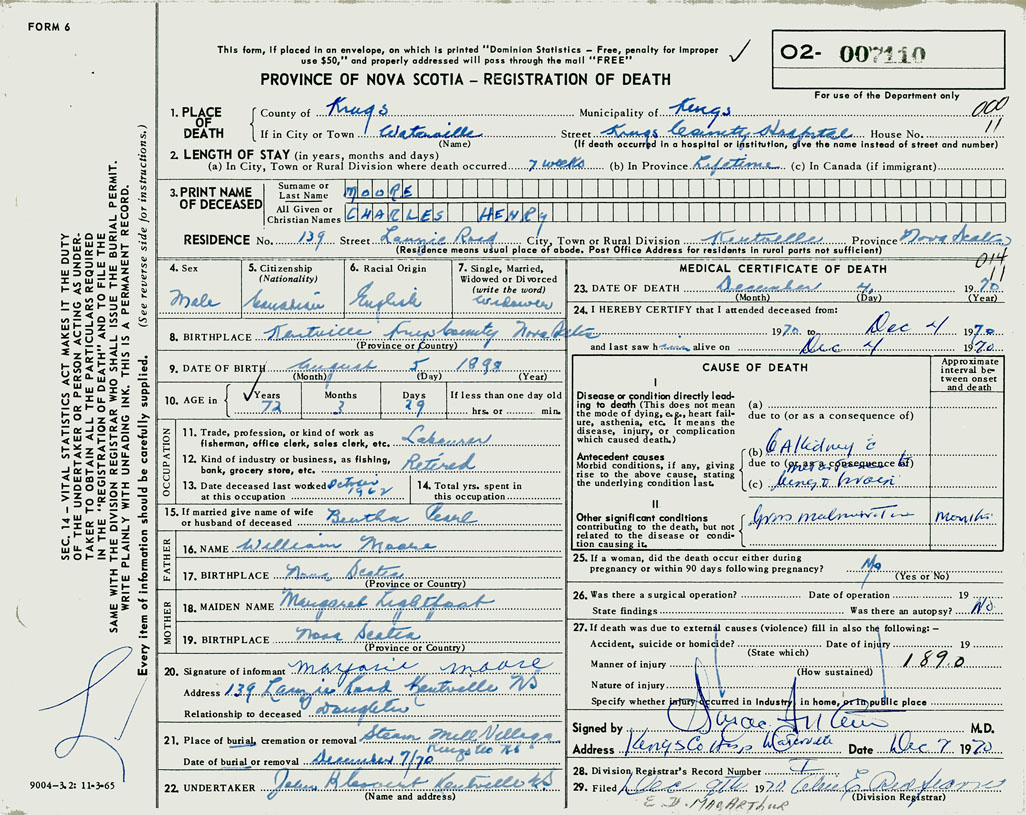 FORM 6
This form, if placed in an envelope, on which is printed "Dominion Statistics – Free, penalty for improper
use $50," and properly addressed will pass through the mail "FREE"
✓
O2- 007110
PROVINCE OF NOVA SCOTIA – REGISTRATION OF DEATH
For use of the Department only
000
11
1. PLACE OF DEATH
County of Kings Municipality of Kings
If in City or Town Waterville Street Kings County Hospital House No.
(Name) (If death occurred in a hospital or institution, give the name instead of street and number)
2. LENGTH OF STAY (in years, months and days)
(a) In City, Town or Rural Division where death occurred 7 weeks (b) In Province Lifetime (c) In Canada (if immigrant)
3. PRINT NAME OF DECEASED
Surname or Last Name MOORE
All Given or Christian Names CHARLES HENRY
RESIDENCE No. 139 Street Road City, Town or Rural Division Kentville Province Nova Scotia
(Residence means usual place of abode. Post Office Address for residents in rural parts not sufficient)
014
11
4. Sex Male
5. Citizenship (Nationality) Canadian
6. Racial Origin English
7. Single, Married, Widowed or Divorced (write the word) Widower
8. BIRTHPLACE Kentville Kings County Nova Scotia
(Province or Country)
9. DATE OF BIRTH August 5 1898
(Month) (Day) (Year)
10. AGE in ✓ Years 72 Months 3 Days 29 If less than one day old
hrs. or min.
OCCUPATION
11. Trade, profession, or kind of work as
fisherman, office clerk, sales clerk, etc. Labourer
12. Kind of industry or business, as fishing,
bank, grocery store, etc. Retired
13. Date deceased last worked at this occupation October 1962
14. Total yrs. spent in this occupation
15. If married give name of wife
or husband of deceased Bertha Pearl
FATHER
16. NAME William Moore
17. BIRTHPLACE Nova Scotia
(Province or Country)
MOTHER
18. MAIDEN NAME Margaret Lightfoot
19. BIRTHPLACE Nova Scotia
(Province or Country)
20. Signature of informant Marjorie Moore
Address 139 Road Kentville NS
Relationship to deceased Daughter
21. Place of burial, cremation or removal Steam Mill Village
Kings Co NS
Date of burial or removal December 7/70
22. UNDERTAKER Kentville NS
(Name and address)
MEDICAL CERTIFICATE OF DEATH
23. DATE OF DEATH December 4 1970
(Month) (Day) (Year)
24. I HEREBY CERTIFY that I attended deceased from:
1970 to Dec 4 1970
and last saw him alive on Dec 4 1970
CAUSE OF DEATH
Approximate interval between onset and death
I
Disease or condition directly leading to death (This does not mean the mode of dying, e.g., heart failure, asthenia, etc. It means the disease, injury, or complication which caused death.)
(a)
due to (or as a consequence of)
Antecedent causes
Morbid conditions, if any, giving rise to the above cause, stating the underlying condition last.
(b) CA kidney c
due to (or as a consequence of)
(c) lung & brain
II
Other significant conditions
contributing to the death, but not related to the disease or condition causing it.
Gross malnutrition Months
25. If a woman, did the death occur either during
pregnancy or within 90 days following pregnancy? No
(Yes or No)
26. Was there a surgical operation? Date of operation 19
State findings Was there an autopsy? No
27. If death was due to external causes (violence) fill in also the following: –
Accident, suicide or homicide? Date of injury 19
(State which)
Manner of injury 189.0
(How sustained)
Nature of injury
Specify whether injury occurred in industry, in home, or in public place
Signed by M.D.
Address Kings Co Hosp Waterville Date Dec 7 1970
28. Division Registrar's Record Number
29. Filed Dec 9th 1970
(Division Registrar)
E. D. MACARTHUR
SEC. 14 – VITAL STATISTICS ACT MAKES IT THE DUTY
OF THE UNDERTAKER OR PERSON ACTING AS UNDER-
TAKER TO OBTAIN ALL THE PARTICULARS REQUIRED
IN THE "REGISTRATION OF DEATH" AND TO FILE THE
SAME WITH THE DIVISION REGISTRAR WHO SHALL ISSUE THE BURIAL PERMIT.
WRITE PLAINLY WITH UNFADING INK. THIS IS A PERMANENT RECORD.
Every item of information should be carefully supplied. (See reverse side for instructions.)
9004-3.2: 11-3-65